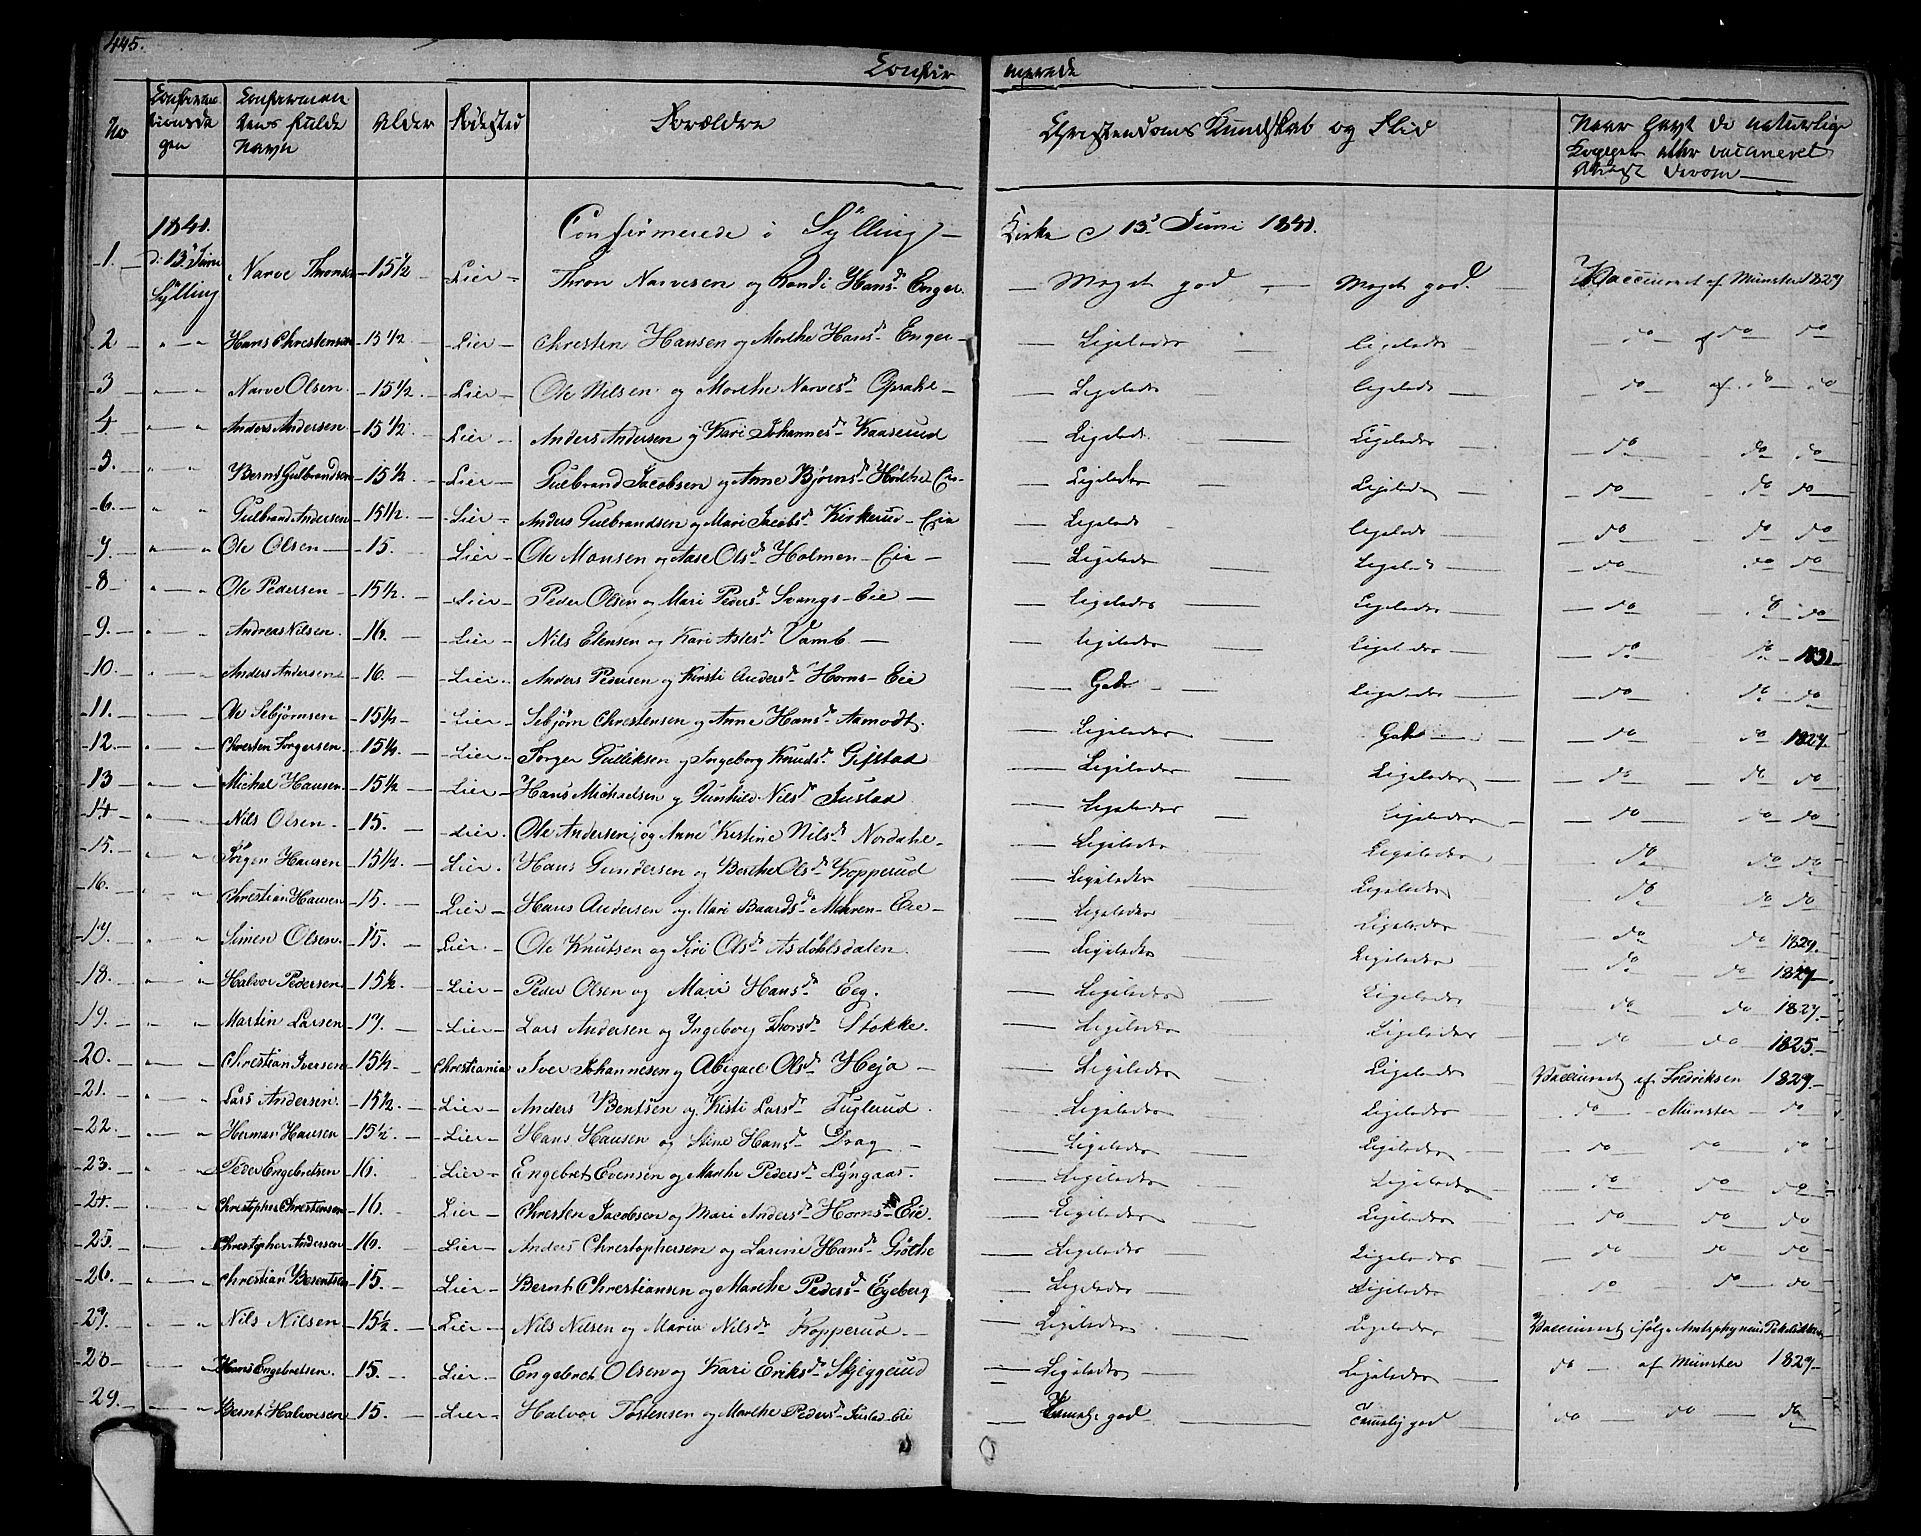 445.
Confir merede
No Confirma tionsda gen Confirman dens fulde Navn Alder Fødested Forældre Christendoms Kundskab og Flid Naar havt de naturlige Kopper eller vaccineret
1841. Confirmerede i Sylling Kirke d 13de Juni 1841.
1. d. 13de Juni Sylling Narve Thronsen 15½ Lier Thron Narvesen og Randi Hansd. Enger. Meget god Meget god. Vaccineret af Münster 1827
2 " " Hans Chrestensen 15½ Lier Chresten Hansen og Marthe Hansd. Enger Ligeledes Ligeledes do af do do
3 " " Narve Olsen. 15½. Lier Ole Nilsen og Marthe Narvesd. Opsahl Ligeledes Ligeleds do af do do
4 " " Anders Andersen. 15½. Lier Anders Andersen og Kari Johannesd. Kaaserud Ligeled. Ligeledes do do do
5. " " Bernt Gulbrandsen 15½ Lier Gulbrand Jacobsen og Anne Bjørnsd. Hørthe Eie Ligeledes Ligeledes do do do
6. " " Gulbrand Andersen 15½. Lier Anders Gulbrandsen og Mari Jacobsd. Kirkerud Eie Ligeleds Ligeledes do do do
7. " " Ole Olsen 15. Lier Ole Monsen og Aase Olsd. Holmen Eie Ligeledes Ligeleds do do do
8 " " Ole Pedersen 15½. Lier Peder Olsen og Mari Pedersd. Svangs Eie Ligeledes Ligeledes do do do
9. " " Andreas Nilsen. 16. Lier Nils Ellensen og Kari Aslesd. Vamb Ligeledes Ligeledes do do 1831
10. " " Anders Andersen 16. Lier. Anders Pedersen og Kirsti Andersd. Horns Eie Godt Ligeledes do do do
11. " " Ole Sebjørnsen 15½ Lier Sebjørn Chrestensen og Anne Hansd. Aamodt. Ligeledes Godt do do 1827.
12. " " Chresten Torgersen. 15½. Lier Torger Gulliksen og Ingeborg Knudsd. Gifstad Ligeledes Ligeledes do do do
13 " " Michal Hansen 15½ Lier Hans Michaelsen og Gunhild Nilsd. Justad Ligeledes Ligeledes do do do
14 " " Nils Olsen 15. Lier. Ole Andersen og Anne Kirstine Nilsd. Nordahl Ligeledes Ligeledes do do do
15. " " Jörgen Hansen 15½ Lier. Hans Gundersen og Berthe Olsd. Kopperud Ligeledes Ligeledes do do do
16. " " Chrestian Hansen 15. Lier Hans Andersen og Mari Baardsd. Mehren Eie Ligeledes Ligeledes do do 1829.
17. " " Simen Olsen. 15. Lier. Ole Knutsen og Siri Olsd. Asdøhlsdalen. Ligeledes Ligeledes do do 1827
18. " " Halvor Pedersen 15½ Lier Peder Olsen og Mari Hansd. Eeg. Ligeledes Ligeledes do do 1827.
19. " " Martin Larsen 17. Lier Lars Andersen og Ingeborg Thorsd. Stokke. Ligeledes Ligeledes do do 1825.
20. " " Chrestian Iversen 15½ Chrestiania Iver Johannesen og Abigael Olsd. Heja Ligeledes Ligeleds Vaccineret af Fredriksen 1827
21. " " Lars Andersen. 15½. Lier Anders Bentsen og Kisti Larsd. Fuglerud. Ligeledes Ligeledes do Münster do
22. " " Herman Hansen 15½. Lier Hans Hansen og Stine Hansd. Drag Ligeledes Ligeledes do do do
23. " " Peder Engebretsen 16. Lier Engebret Evensen og Marthe Pedersd. Lyngaas. Ligeledes Ligeledes do do do
24. " " Chrestopher Chrestensen 16. Lier Chresten Jacobsen og Mari Andersd. Horns Eie. Ligeledes Ligeledes do do do
25. " " Chrestopher Andersen 16. Lier Anders Chrestophersen og Larine Hansd. Grøthe Ligeledes Ligeledes do do do
26. " " Chrestian Berentsen 15. Lier Bernt Chrestiansen og Marthe Pedersd. Egeberg Ligeledes Ligeledes do do do
27. " " Nils Nilsen 15½. Lier Nils Nilsen og Maria Nilsd. Kopperud. Ligeledes Ligeledes Vaccineret ifølge Amtsphysicus
28 " " Hans Engebretsen. 15. Lier Engebret Olsen og Kari Eriksd. Skjeggerud Ligeledes Ligeledes do af Münster 1827
29. " " Bernt Halvorsen 15. Lier Halvor Tostensen og Marthe Pedersd. Justad Eie Temmelig god Temmelig god do do do